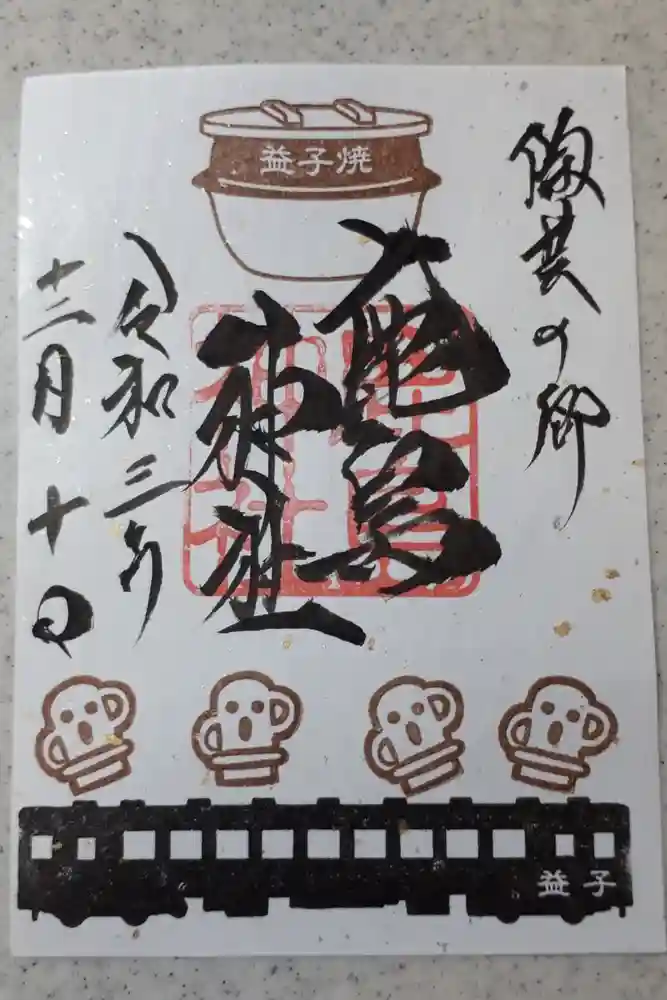 益子焼
陶芸の郷
鹿島
神社
令和三年
十二月十日
益子